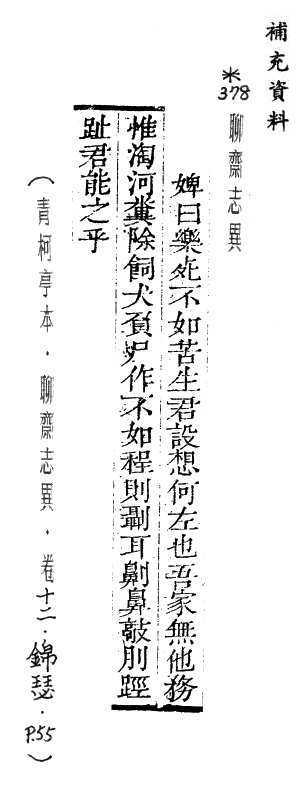 補充資料
*378 聊齋志異
婢曰樂死不如苦生君設想何左也吾家無他務
惟淘河糞除飼犬負尸作不如程則刵耳劓鼻敲刖踁
趾君能之乎
（青柯亭本．聊齋志異．卷十二．錦瑟．P.55）